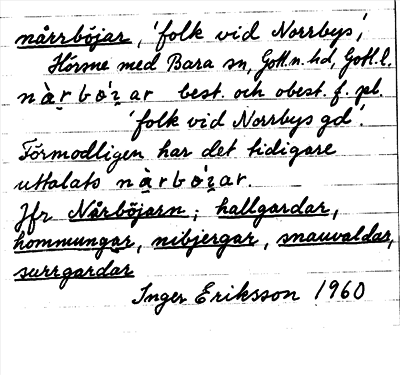 nårrböjar, 'folk vid Norrbys',
Hörsne med Bara sn, Gotl.n.hd, Gotl.l.
nạ̀rbó'ẓar best. och obest. f. pl.
'folk vid Norrbys gd'.
Förmodligen har det tidigare
uttalats nạ̀rbó'ẓar.
Jfr Nårböjarn; hallgardar,
hommungar, nibjergar, snauvaldar,
surrgardar
Inger Eriksson 1960